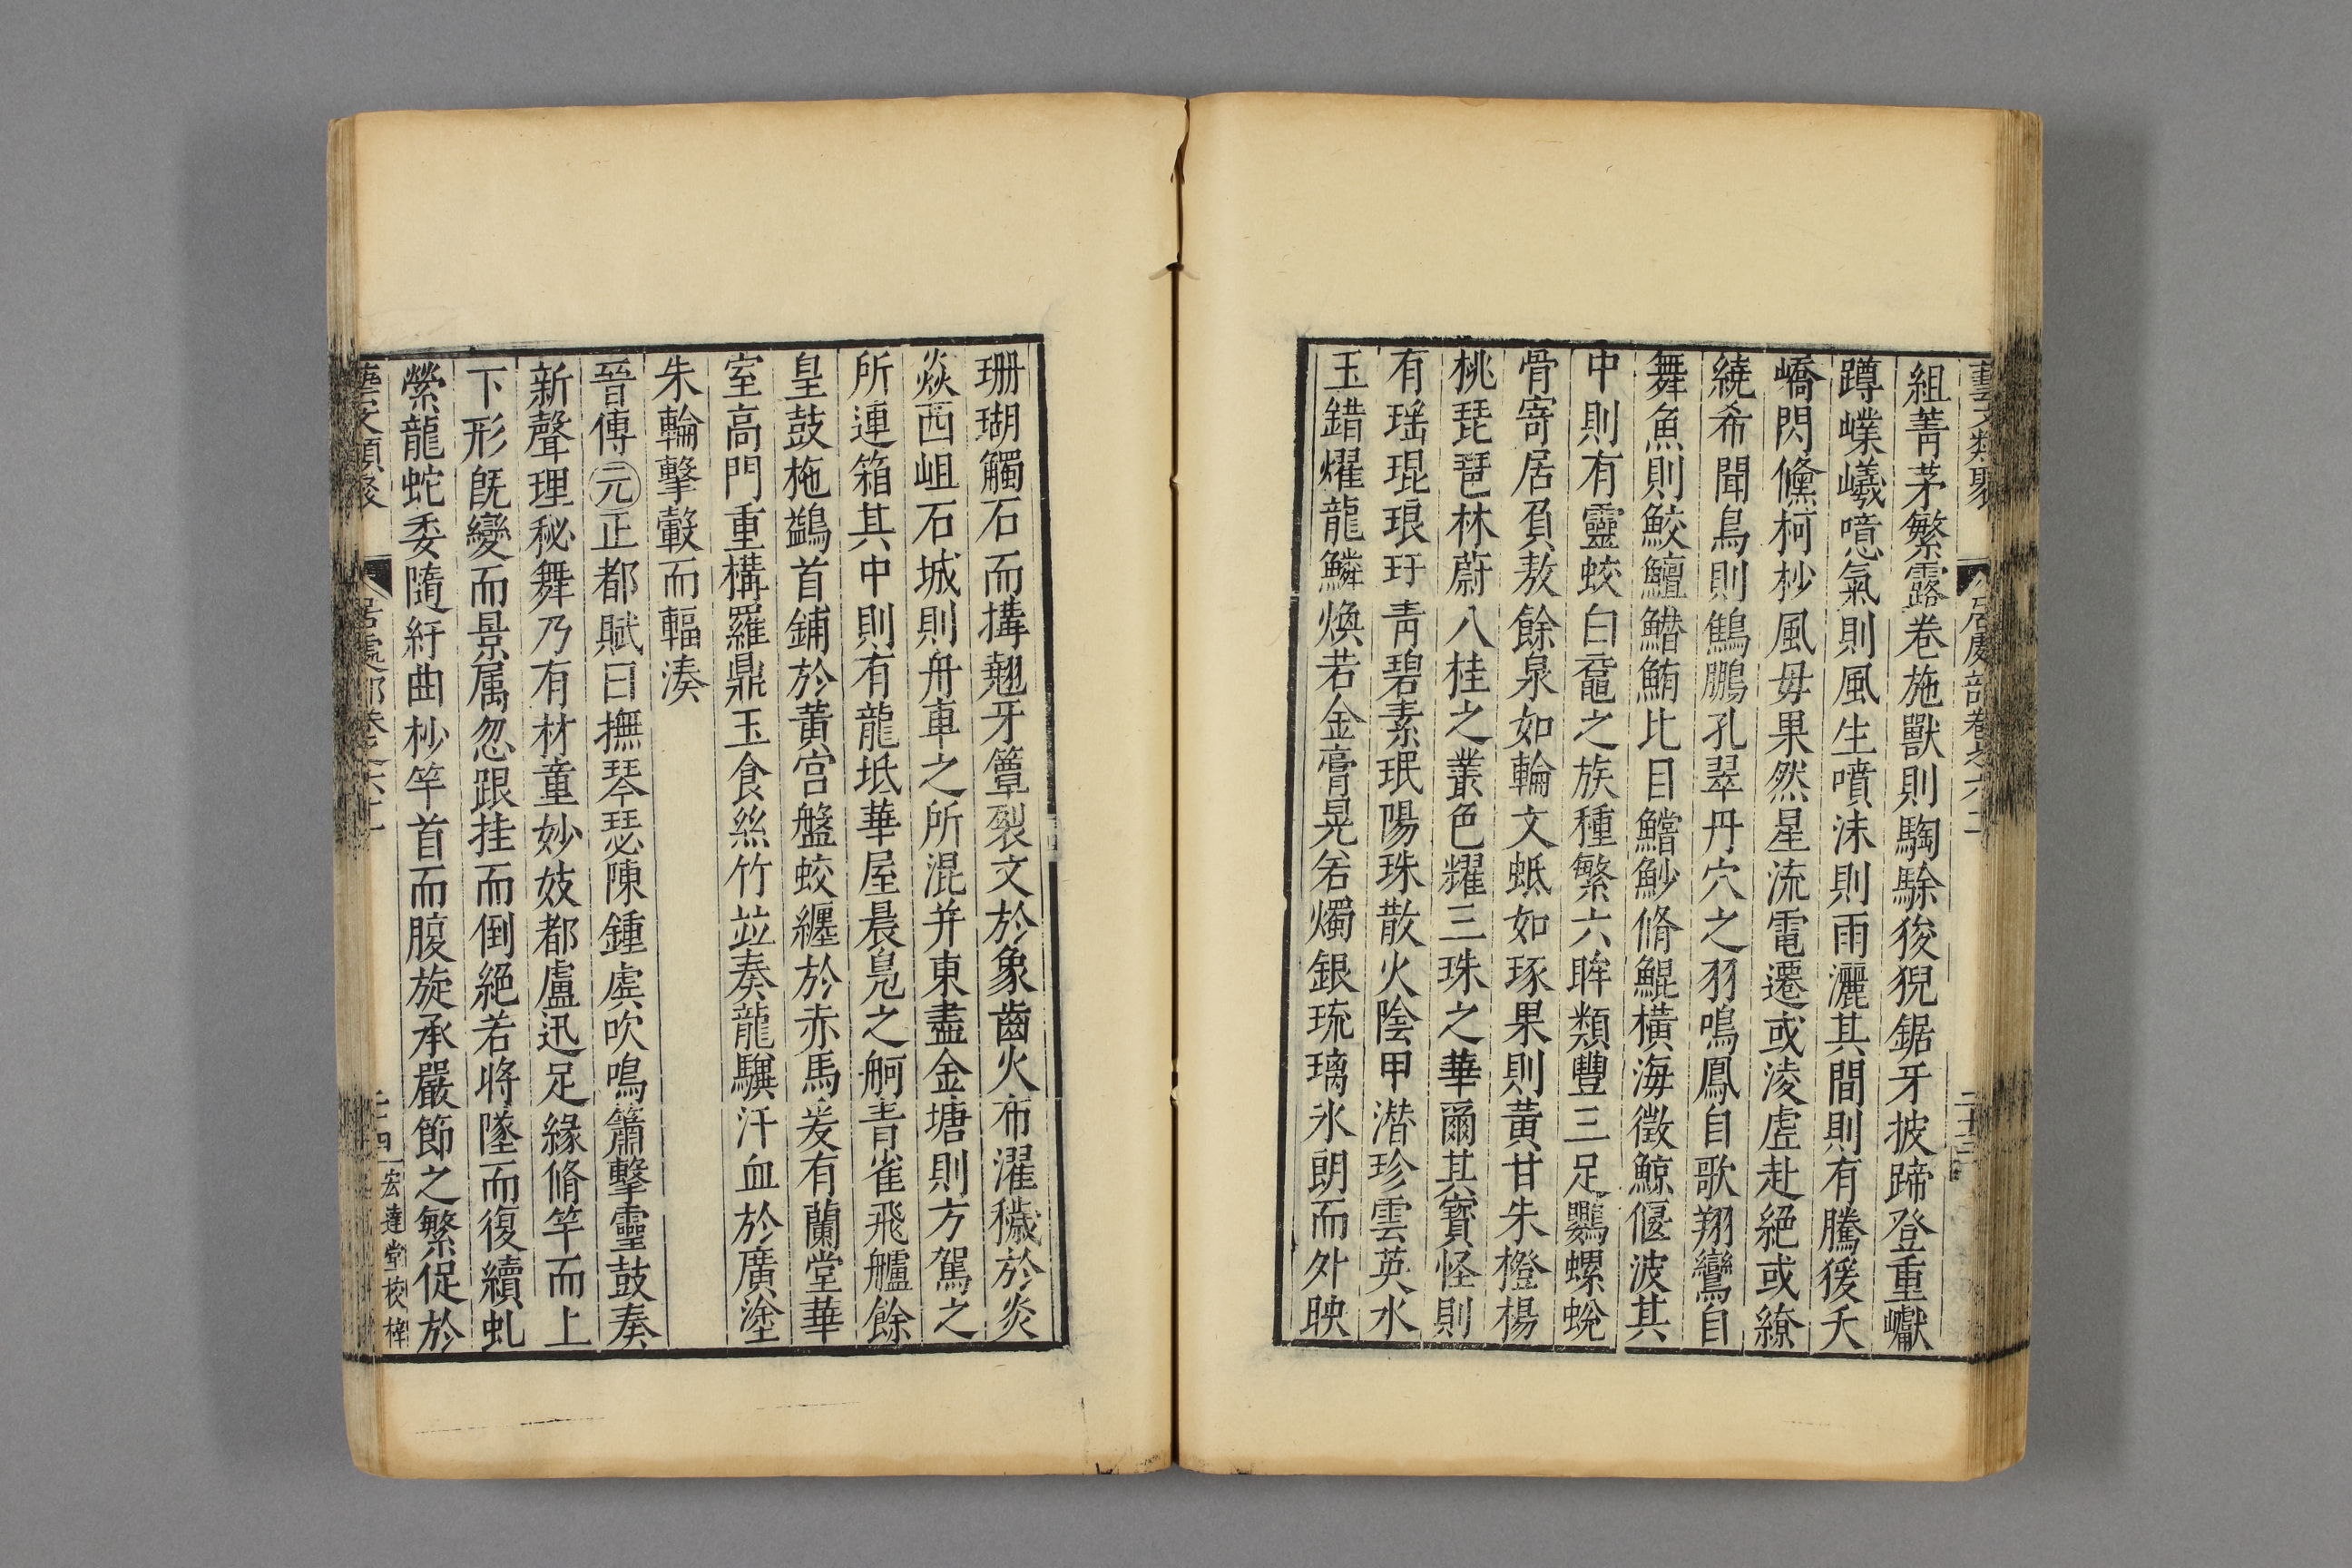 藝文類聚 居處部卷之六十一 二十三
組菁茅繁露卷施獸則騊駼狻猊鋸牙披蹄登重巘
蹲㠎嶬噫氣則風生噴沫則雨灑其間則有騰猨夭
嶠閃儵柯杪風毋果然星流電遷或淩虛赴絕或繚
繞希聞鳥則鷦鵬孔翠丹穴之羽鳴鳳自歌翔鸞自
舞魚則鮫鱣鰌鮪比目鱨魦脩鯤橫海徵鯨偃波其
中則有靈蛟白黿之族種繁六眸類豐三足鸚螺蛻
骨寄居負敖餘泉如輪文蚳如琢果則黃甘朱橙楊
桃琵琶林蔚八桂之叢色耀三珠之華爾其寶怪則
有瑤琨琅玗青碧素珉陽珠散火陰甲潛珍雲英水
玉錯燿龍鱗煥若金膏晃若燭銀琉璃氷朗而外映
珊瑚觸石而搆翹牙簟裂文於象齒火布濯穢於炎
焱西岨石城則舟車之所混并東盡金塘則方駕之
所連箱其中則有龍坻華屋晨鳧之舸青雀飛艫餘
皇鼓枻鷁首鋪於黃宮盤蛟纏於赤馬爰有蘭堂華
室高門重構羅鼎玉食絲竹竝奏龍驥汗血於廣塗
朱輪擊轂而輻湊
晉傅元正都賦曰撫琴瑟陳鍾虡吹鳴簫擊靈鼓奏
新聲理秘舞乃有材童妙妓都盧迅足緣脩竿而上
下形旣變而景属忽跟挂而倒絕若將墜而復續虬
縈龍蛇委隨紆曲杪竿首而腹旋承嚴節之繁促於
藝文類聚 居處部卷之六十一 二十四 宏達堂校梓